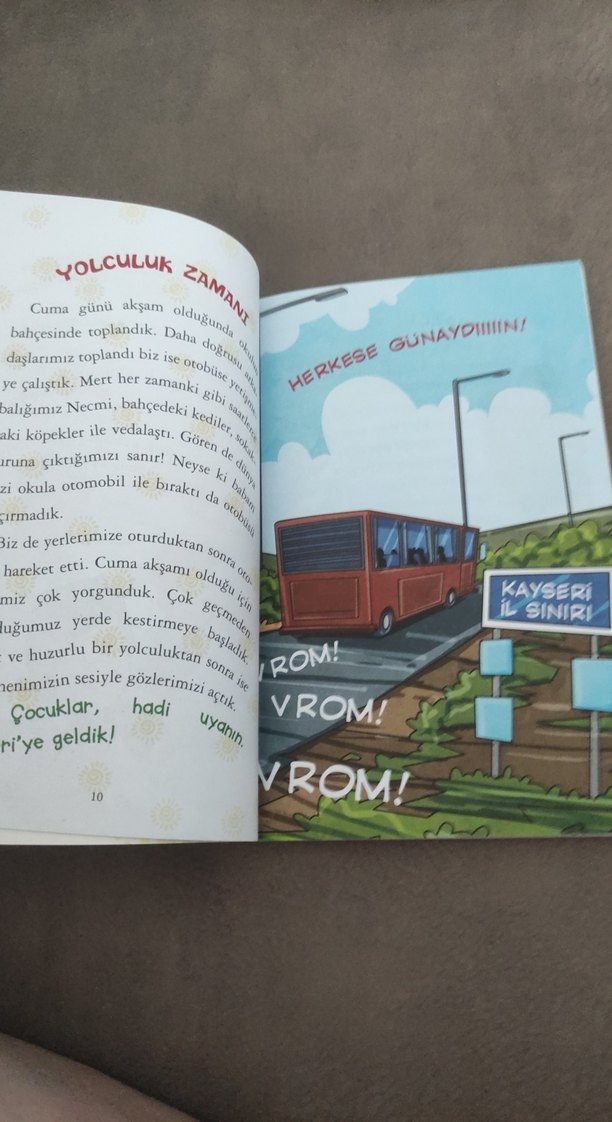 YOLCULUK ZAMANI
Cuma günü akşam olduğunda okulun
bahçesinde toplandık. Daha doğrusu arka-
daşlarımız toplandı biz ise otobüse yetişme-
ye çalıştık. Mert her zamanki gibi saatlerce
balığımız Necmi, bahçedeki kediler, sokak-
aki köpekler ile vedalaştı. Gören de dünya
uruna çıktığımızı sanır! Neyse ki babam
zi okula otomobil ile bıraktı da otobüsü
çırmadık.
Biz de yerlerimize oturduktan sonra oto-
hareket etti. Cuma akşamı olduğu için
miz çok yorgunduk. Çok geçmeden
duğumuz yerde kestirmeye başladık.
ve huzurlu bir yolculuktan sonra ise
menimizin sesiyle gözlerimizi açtık.
Çocuklar, hadi uyanın.
ri'ye geldik!
10
HERKESE GÜNAYDIIIIIN!
KAYSERİ
İL SINIRI
VROM!
VROM!
VROM!